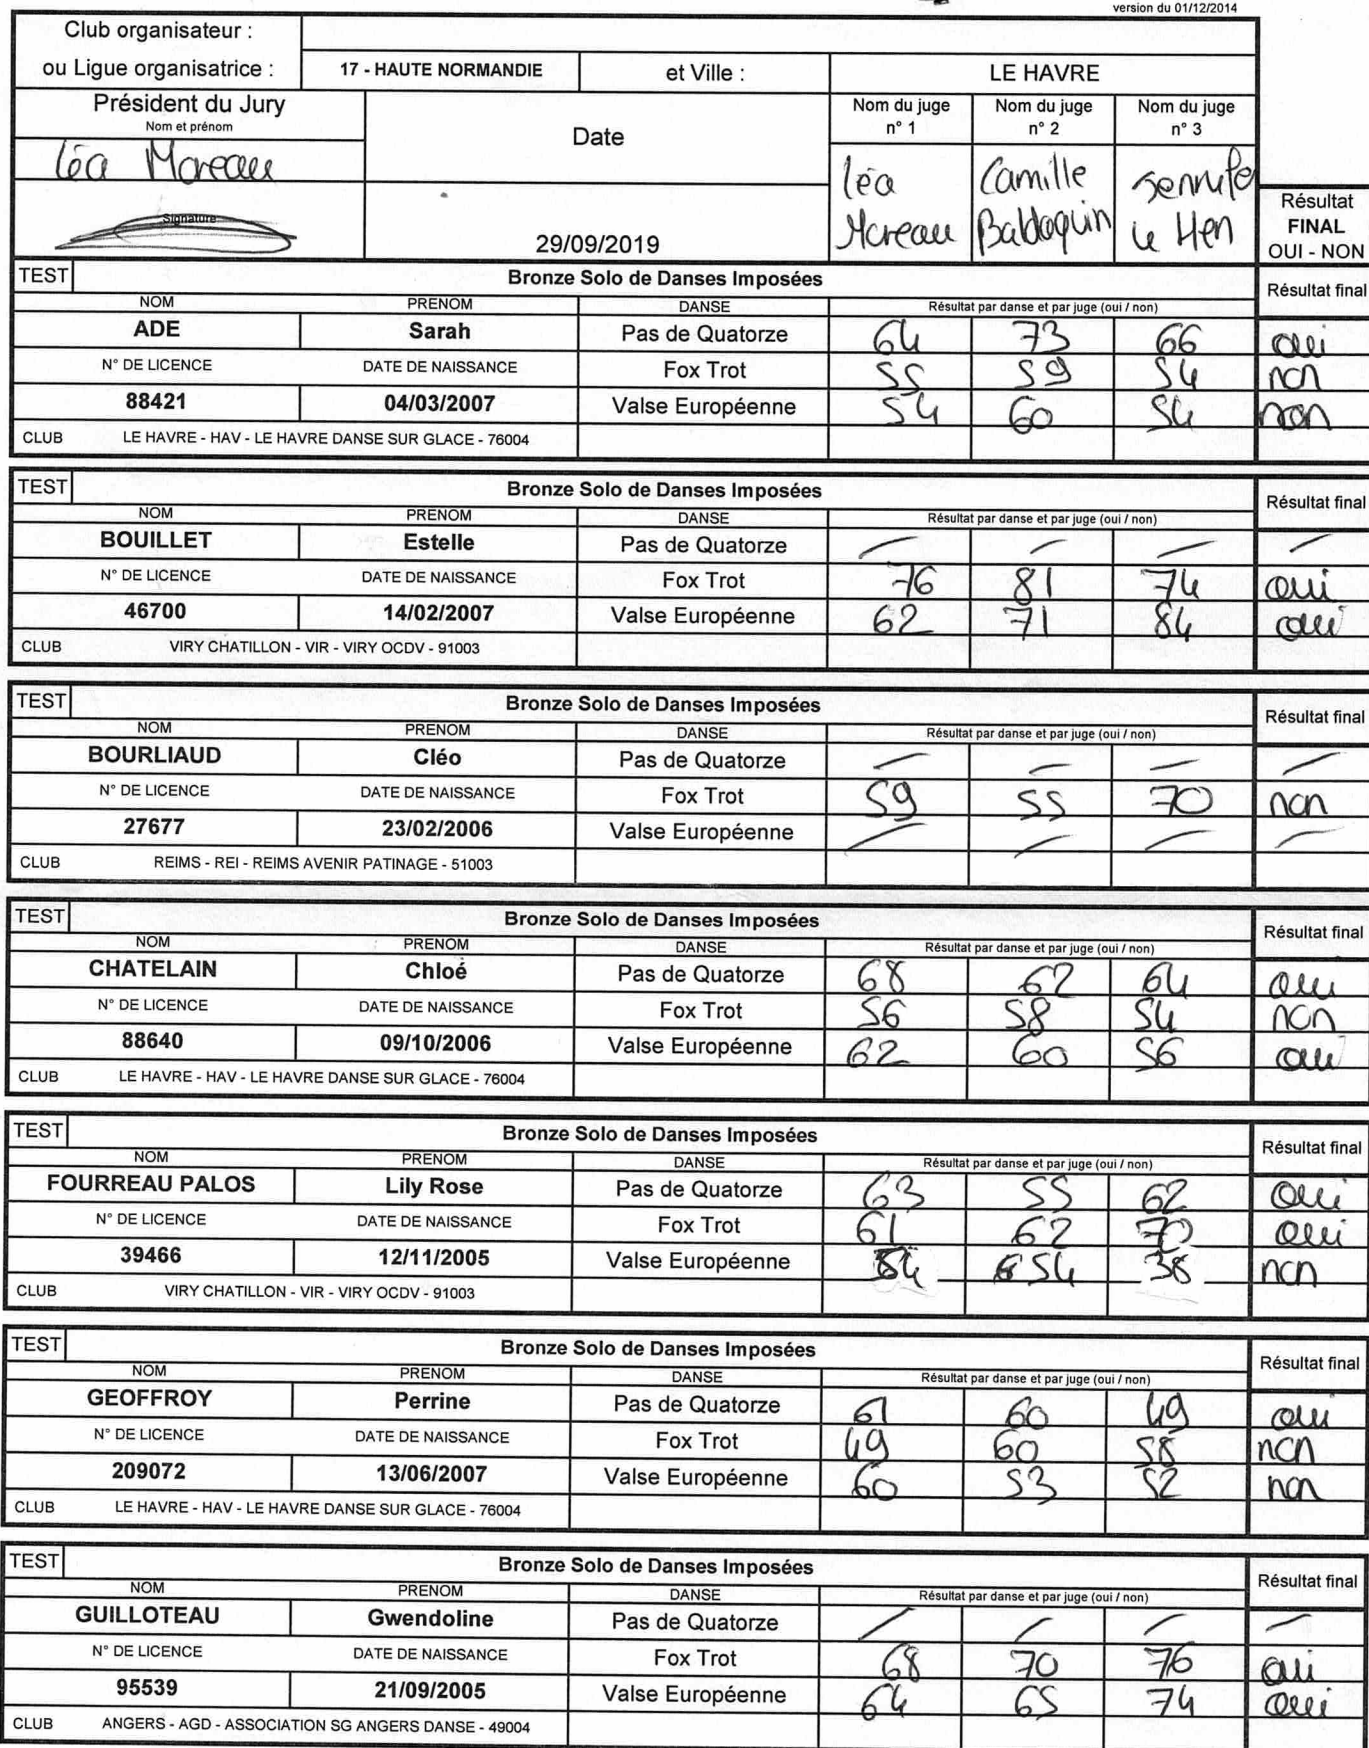 version du 01/12/2014
Club organisateur :
ou Ligue organisatrice : 17 - HAUTE NORMANDIE et Ville : LE HAVRE
Président du Jury
Nom et prénom
Léa Moreau
Signature
Date
29/09/2019
Nom du juge n° 1 Nom du juge n° 2 Nom du juge n° 3
Léa Moreau Camille Baldoquin Jennifer Le Hen
Résultat
FINAL
OUI - NON
TEST Bronze Solo de Danses Imposées Résultat final
NOM PRENOM DANSE Résultat par danse et par juge (oui / non)
ADE Sarah Pas de Quatorze 64 73 66 oui
N° DE LICENCE DATE DE NAISSANCE Fox Trot 55 59 54 non
88421 04/03/2007 Valse Européenne 54 60 54 non
CLUB LE HAVRE - HAV - LE HAVRE DANSE SUR GLACE - 76004
TEST Bronze Solo de Danses Imposées Résultat final
NOM PRENOM DANSE Résultat par danse et par juge (oui / non)
BOUILLET Estelle Pas de Quatorze — — — —
N° DE LICENCE DATE DE NAISSANCE Fox Trot 76 81 74 oui
46700 14/02/2007 Valse Européenne 62 71 84 oui
CLUB VIRY CHATILLON - VIR - VIRY OCDV - 91003
TEST Bronze Solo de Danses Imposées Résultat final
NOM PRENOM DANSE Résultat par danse et par juge (oui / non)
BOURLIAUD Cléo Pas de Quatorze — — — —
N° DE LICENCE DATE DE NAISSANCE Fox Trot 59 55 70 non
27677 23/02/2006 Valse Européenne — — — —
CLUB REIMS - REI - REIMS AVENIR PATINAGE - 51003
TEST Bronze Solo de Danses Imposées Résultat final
NOM PRENOM DANSE Résultat par danse et par juge (oui / non)
CHATELAIN Chloé Pas de Quatorze 68 62 64 oui
N° DE LICENCE DATE DE NAISSANCE Fox Trot 56 58 54 non
88640 09/10/2006 Valse Européenne 62 60 56 oui
CLUB LE HAVRE - HAV - LE HAVRE DANSE SUR GLACE - 76004
TEST Bronze Solo de Danses Imposées Résultat final
NOM PRENOM DANSE Résultat par danse et par juge (oui / non)
FOURREAU PALOS Lily Rose Pas de Quatorze 63 55 62 oui
N° DE LICENCE DATE DE NAISSANCE Fox Trot 61 62 70 oui
39466 12/11/2005 Valse Européenne 54 54 38 non
CLUB VIRY CHATILLON - VIR - VIRY OCDV - 91003
TEST Bronze Solo de Danses Imposées Résultat final
NOM PRENOM DANSE Résultat par danse et par juge (oui / non)
GEOFFROY Perrine Pas de Quatorze 61 60 49 oui
N° DE LICENCE DATE DE NAISSANCE Fox Trot 49 60 58 non
209072 13/06/2007 Valse Européenne 60 53 52 non
CLUB LE HAVRE - HAV - LE HAVRE DANSE SUR GLACE - 76004
TEST Bronze Solo de Danses Imposées Résultat final
NOM PRENOM DANSE Résultat par danse et par juge (oui / non)
GUILLOTEAU Gwendoline Pas de Quatorze — — — —
N° DE LICENCE DATE DE NAISSANCE Fox Trot 68 70 76 oui
95539 21/09/2005 Valse Européenne 64 65 74 oui
CLUB ANGERS - AGD - ASSOCIATION SG ANGERS DANSE - 49004